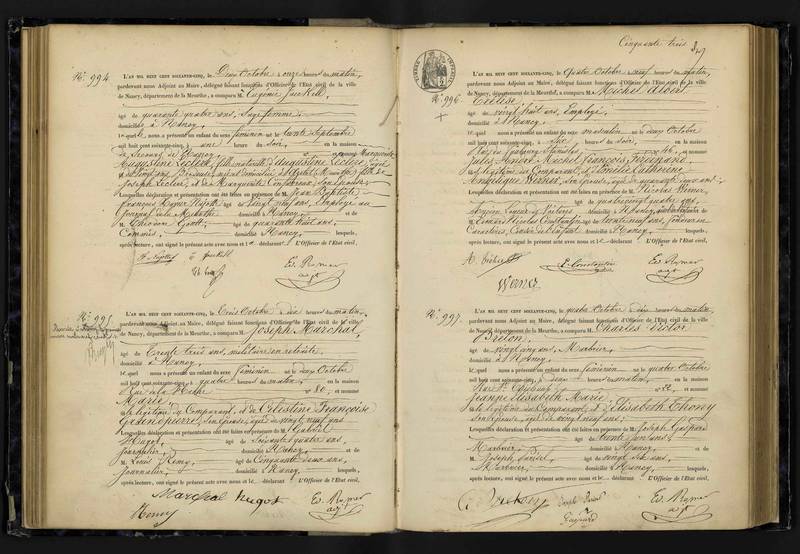 N° 994
L'AN MIL HUIT CENT SOIXANTE-CINQ, le Deux Octobre à onze heures du matin,
pardevant nous Adjoint au Maire, délégué faisant fonctions d'Officier de l'Etat civil de la ville
de Nancy, département de la Meurthe, a comparu M Eugénie
âgé de quarante quatre ans, Sage femme
domicilié à Nancy
lequel nous a présenté un enfant du sexe féminin né le trente Septembre
mil huit cent soixante-cinq, à une heure du soir, en la maison
de Secours de Nancy et nommé Marguerite
Augustine Leclerc, fille naturelle d'Augustine Leclerc
de ans, domiciliée à fille de
Joseph Leclerc, et de Marguerite son épouse
Lesquelles déclaration et présentation ont été faites en présence de M. Jean Baptiste
François âgé de Vingt neuf ans, Employé au
Journal de la Meurthe domicilié à Nancy, et de
M. Théodore âgé de quarante huit ans,
Commis, domicilié à Nancy lesquels,
après lecture, ont signé le présent acte avec nous et le déclarant. L'Officier de l'Etat civil,
Ed. Remer
adjt
N° 995
L'AN MIL HUIT CENT SOIXANTE-CINQ, le Trois Octobre à dix heures du matin,
pardevant nous Adjoint au Maire, délégué faisant fonctions d'Officier de l'Etat civil de la ville
de Nancy, département de la Meurthe, a comparu M. Joseph Marchal,
âgé de Trente trois ans, militaire en retraite,
domicilié à Nancy
lequel nous a présenté un enfant du sexe féminin né le deux Octobre
mil huit cent soixante-cinq, à quatre heures du matin, en la maison
Rue de la n° 80, et nommé
Marie,
fille légitime du Comparant, et de Célestine Françoise
Grandpierre, son épouse, âgée de vingt neuf ans
Lesquelles déclaration et présentation ont été faites en présence de M. Gabriel
Hugot, âgé de Soixante quatre ans,
journalier, domicilié à Nancy et de
M. Louis Remy, âgé de Cinquante deux ans,
journalier, domicilié à Nancy, lesquels,
après lecture, ont signé le présent acte avec nous et le déclarant L'Officier de l'Etat civil,
Marchal Hugot
Ed. Remer
adjt
Cinquante trois
TIMBRE IMPERIAL
N° 996
L'AN MIL HUIT CENT SOIXANTE-CINQ, le Quatre Octobre à neuf heures du matin,
pardevant nous Adjoint au Maire, délégué faisant fonctions d'Officier de l'Etat civil de la ville
de Nancy, département de la Meurthe, a comparu M. Michel
âgé de vingt huit ans, Employé,
domicilié à Nancy
lequel nous a présenté un enfant du sexe masculin né le deux Octobre
mil huit cent soixante-cinq, à six heures du soir, en la maison
Rue du faubourg Stanislas n° 46, et nommé
Jules André Michel François Ferdinand
fils légitime du Comparant et d'Amélie Catherine
Angélique Werner, son épouse, âgée de quarante deux ans
Lesquelles déclaration et présentation ont été faites en présence de M. Nicolas Werner,
âgé de quatre vingt quatre ans,
Ancien Loueur de Voitures domicilié à Nancy,
M. Edouard Nicolas Constantin âgé de trente neuf ans, fondeur en
Caractères, Cousin de l'enfant domicilié à Nancy, lesquels,
après lecture, ont signé le présent acte avec nous et le déclarant L'Officier de l'Etat civil,
E. Constantin
Ed. Remer
adjt
Werner
N° 997
L'AN MIL HUIT CENT SOIXANTE-CINQ, le quatre Octobre à dix heures du matin,
pardevant nous Adjoint au Maire, délégué faisant fonctions d'Officier de l'Etat civil de la ville
de Nancy, département de la Meurthe, a comparu M. Charles Victor
Breton,
âgé de vingt cinq ans, Marbrier,
domicilié à Nancy
lequel nous a présenté un enfant du sexe féminin né le quatre Octobre
mil huit cent soixante-cinq, à deux heures du matin, en la maison
Rue n° 32, et nommé
Jeanne Elisabeth Marie
fille légitime du Comparant et d'Elisabeth Thomy
son épouse, âgée de vingt deux ans
Lesquelles déclaration et présentation ont été faites en présence de M. Joseph Gaspard
âgé de trente un ans,
Marbrier, domicilié à Nancy, et de
M. Joseph âgé de vingt six ans,
Marbrier, domicilié à Nancy, lesquels,
après lecture, ont signé le présent acte avec nous et le déclarant L'Officier de l'Etat civil,
Joseph
Gaspard
Ed. Remer
adjt